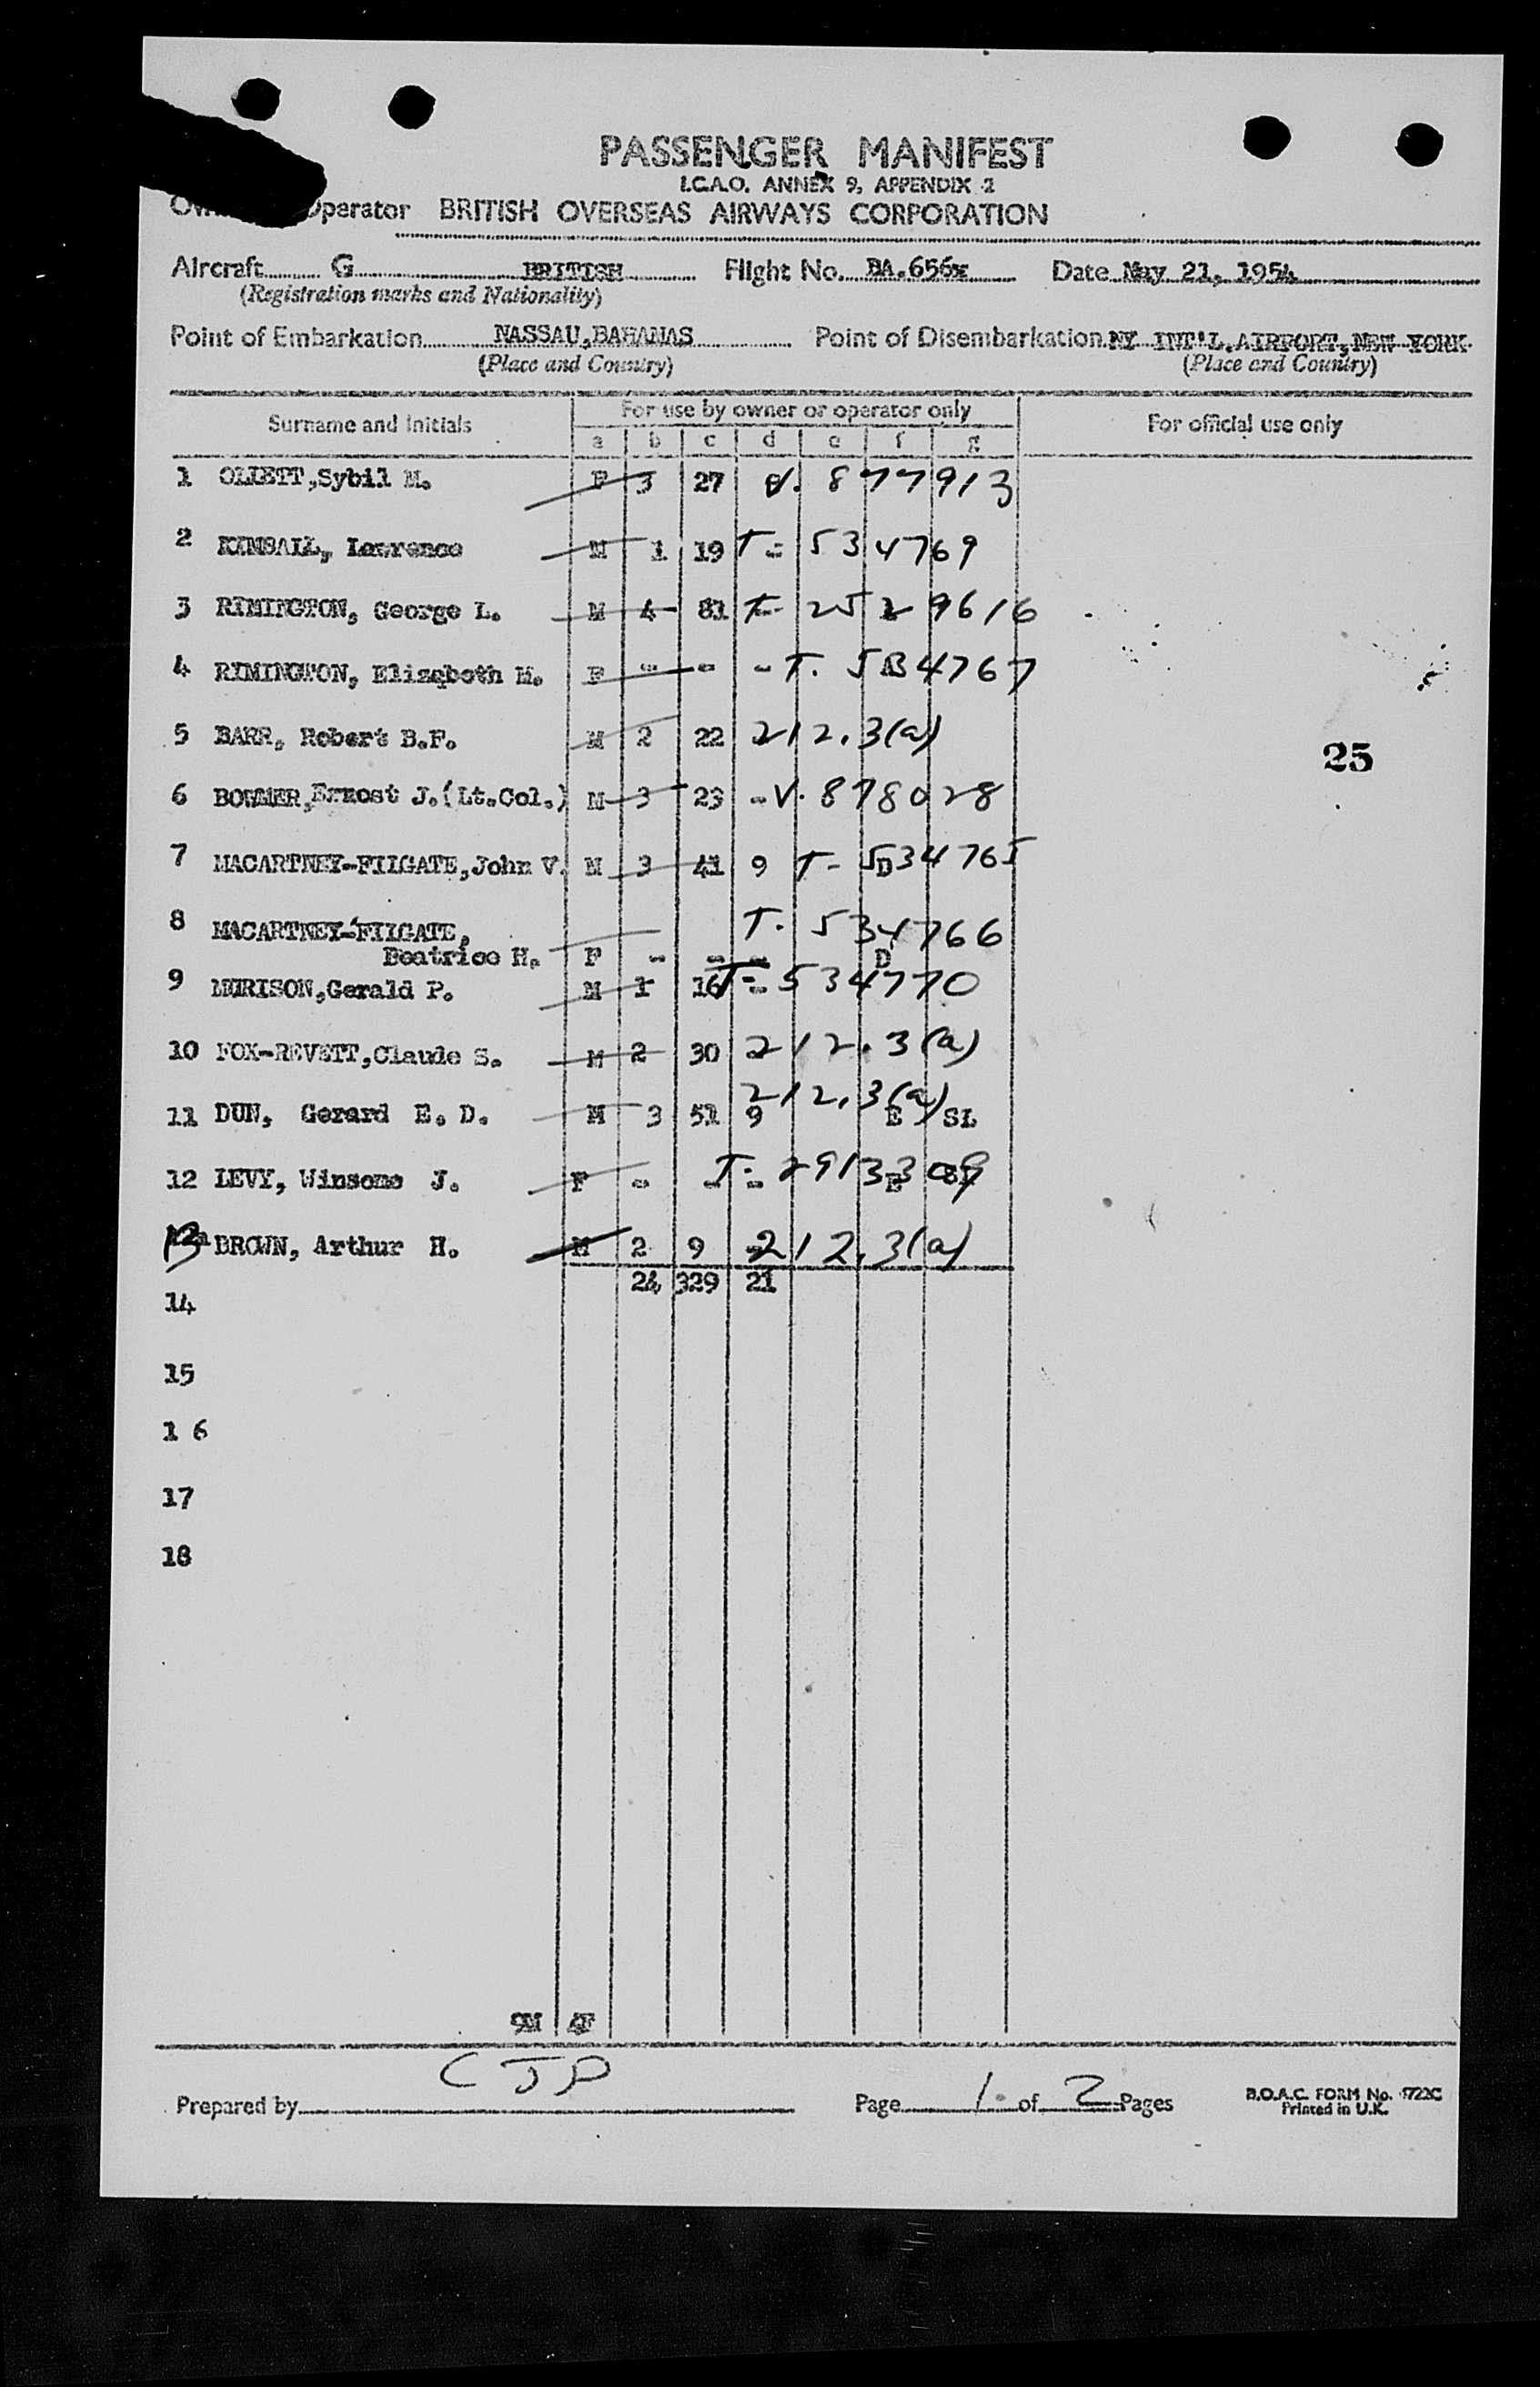 PASSENGER MANIFEST
I.C.A.O. ANNEX 9, APPENDIX 2
Operator BRITISH OVERSEAS AIRWAYS CORPORATION
Aircraft G BRITISH Flight No. BA.656x Date May 21, 1954
(Registration marks and Nationality)
Point of Embarkation NASSAU,BAHAMAS Point of Disembarkation NY INT'L.AIRPORT,NEW YORK
(Place and Country) (Place and Country)
Surname and Initials For use by owner or operator only For official use only
a b c d e f g
1 OLIETT,Sybil M. F 3 27 V. 877913
2 KIMBALL, Lawrence M 1 19 T- 534769
3 RIMINGTON, George L. M 4 81 T- 2529616
4 RIMINGTON, Elizabeth M. F - - - T. 534767
5 BARR, Robert B.F. M 2 22 212.3(a)
25
6 BOWMER,Ernest J.(Lt.Col.) M 3 23 - V. 878028
7 MACARTNEY-FILGATE,John V. M 3 41 9 T- D 534765
8 MACARTNEY-FILGATE, T. 534766
Beatrice H. F - - - D
9 MURISON,Gerald P. M 1 16 - T- 534770
10 FOX-REVETT,Claude S. M 2 30 212.3(a)
11 DUN, Gerard E. D. M 3 51 9 212.3(a) E SL
12 LEVY, Winsome J. F - - - T- 2913309 E
13 BROWN, Arthur H. M 2 9 - 212.3(a)
24 329 21
14
15
1 6
17
18
9M 4F
Prepared by CJP Page 1 of 2 Pages B.O.A.C. FORM No. 1722C
Printed in U.K.